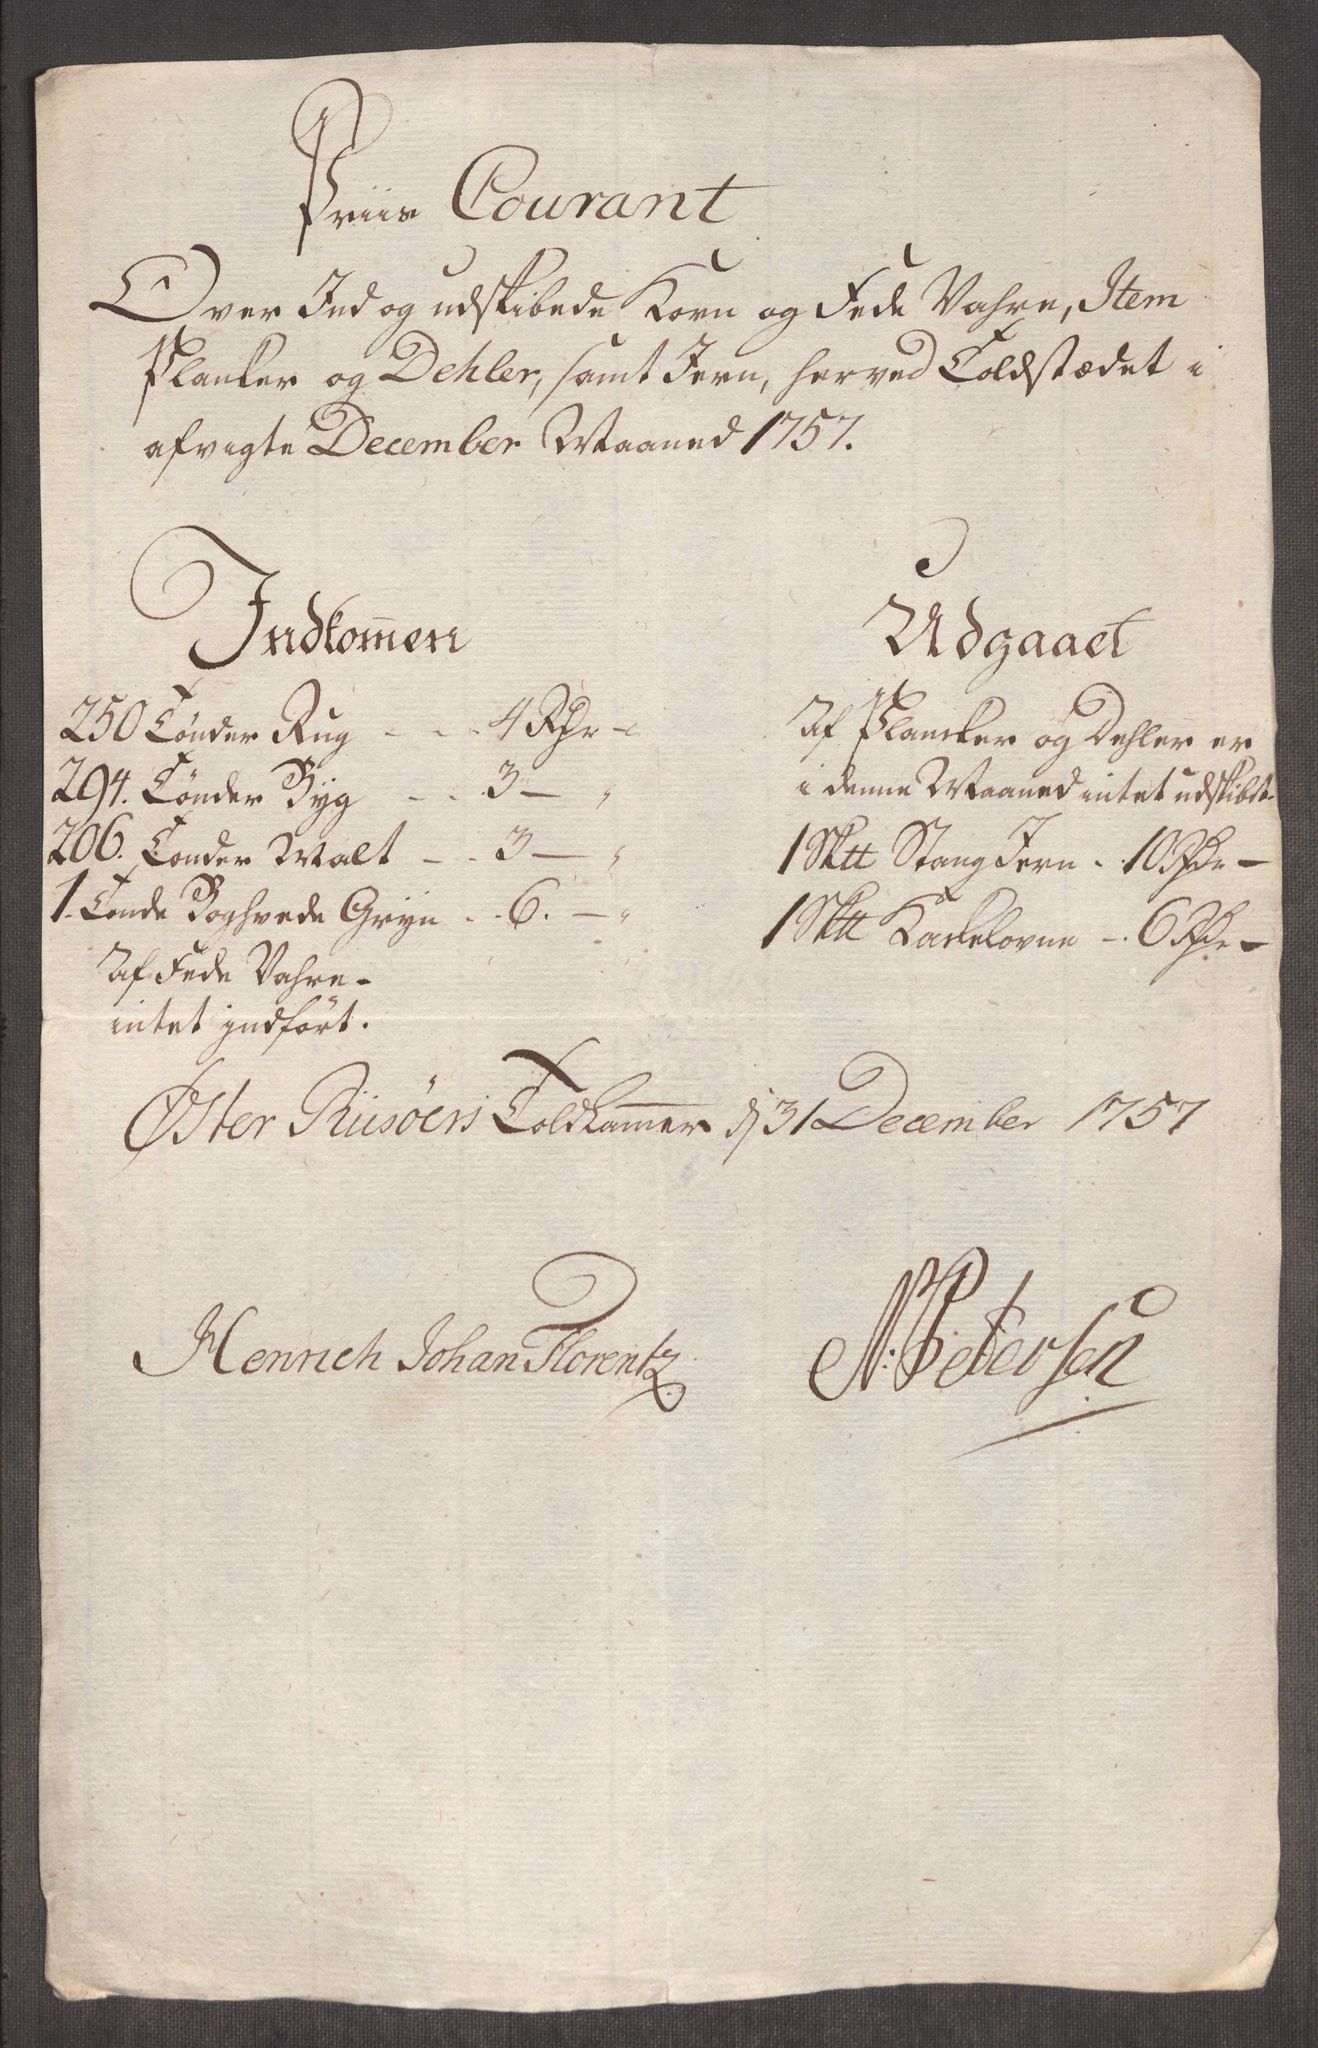 Priis Courant
Over Ind og udskibede Korn og Fede Vahre, Item
Plancker og Dehler, samt Jern, herved Toldstædet i
afvigte December Maaned 1757.
Indkom̅en
250 Tønder Rug - - - 4 Rdr -
294. Tønder Byg - - 3 — "
206. Tønder Malt - - 3 — "
1. Tønde Boghvede Gryn - . 6. — "
Af Fede Vahre -
intet indført.
Udgaaet
Af Plancker og Dehler er
i denne Maaned intet udskibt.
1 Sk℔ Stang Jern . 10 Rdr —
1 Sk℔ Kackelovne - . 6 Rdr —
Øster Riisöers Toldkam̅er d 31 December 1757
Henrich Johan Florentz
N: Petersen